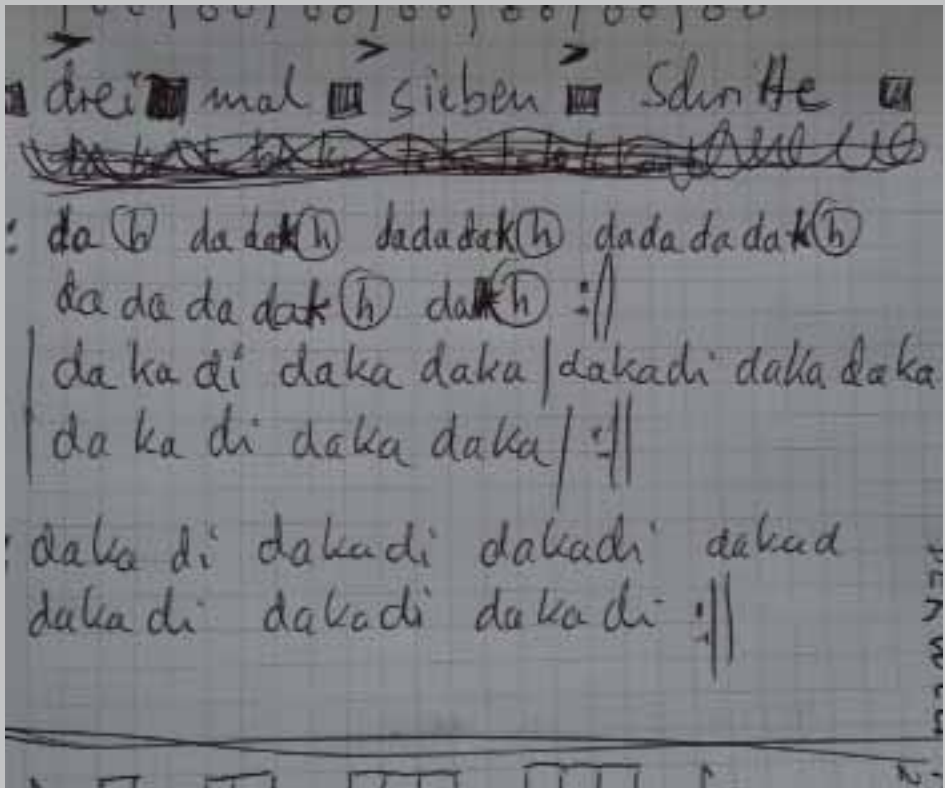 drei mal sieben Schritte
da (h) da dak(h) dadadak(h) dadadadak(h)
da da da dak (h) dak(h) :||
| da ka di daka daka | dakadi daka daka
| da ka di daka daka | :||
: daka di dakadi dakadi dakad
daka di dakadi dakadi :||